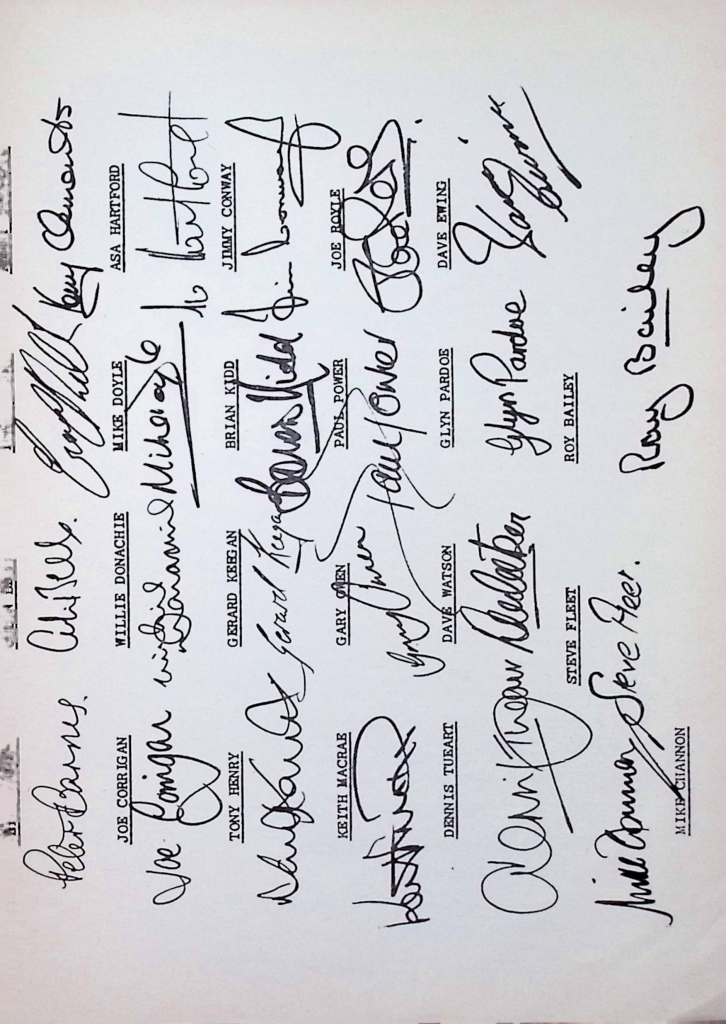 Peter Barnes. Colin Bell. Kenny Clements
JOE CORRIGAN WILLIE DONACHIE MIKE DOYLE ASA HARTFORD
Joe Corrigan Willie Donachie Mike Doyle Hartford
TONY HENRY GERARD KEEGAN BRIAN KIDD JIMMY CONWAY
Gerard Keegan Brian Kidd Jim Conway
KEITH MACRAE GARY OWEN PAUL POWER JOE ROYLE
Gary Owen Paul Power Joe Royle
DENNIS TUEART DAVE WATSON GLYN PARDOE DAVE EWING
Dennis Tueart Glyn Pardoe Dave Ewing
STEVE FLEET ROY BAILEY
Mike Channon Steve Fleet. Roy Bailey
MIKE CHANNON